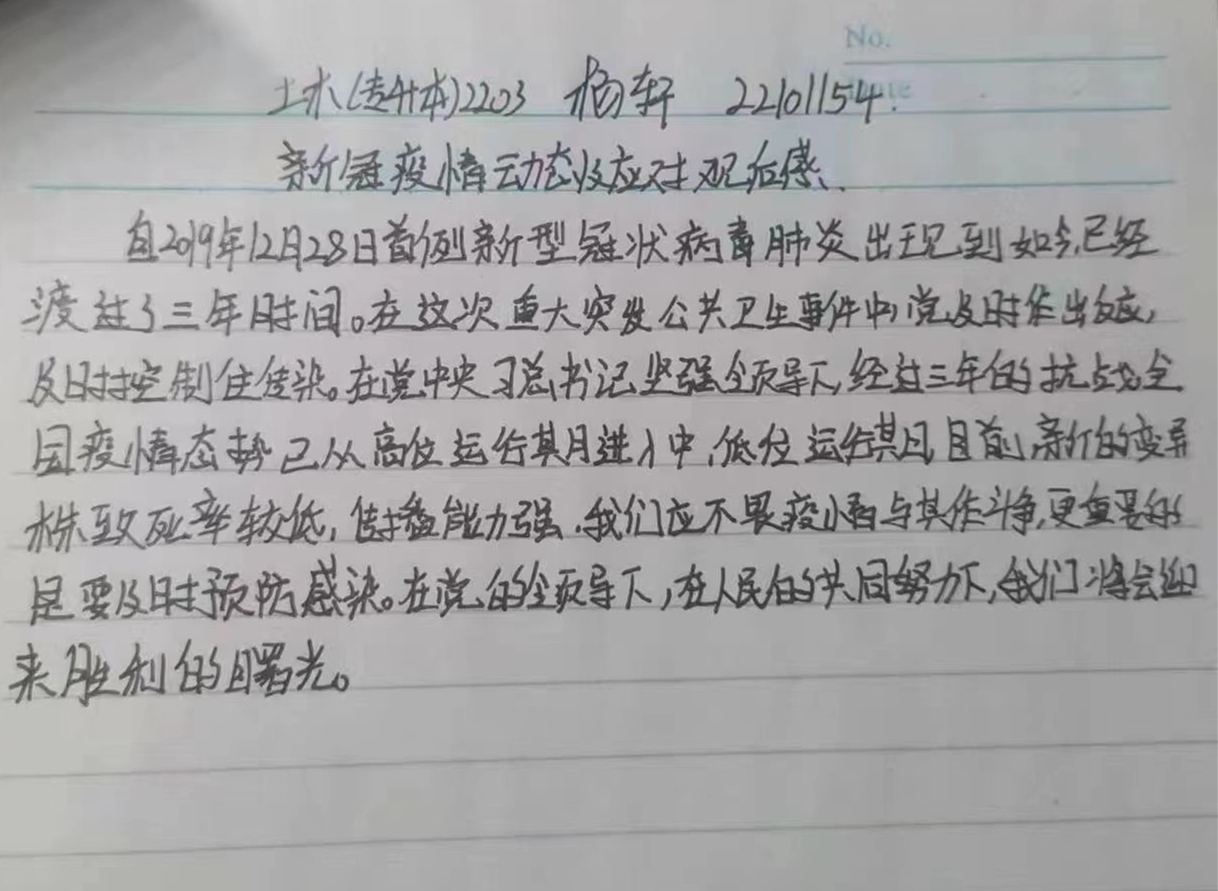 No.
土木(专升本)2203 杨轩 22101154.
新冠疫情动态及应对观后感、
自2019年12月28日首例新型冠状病毒肺炎出现到如今,已经
渡过了三年时间。在这次重大突发公共卫生事件中,党及时作出反应,
及时控制住传染。在党中央习总书记坚强领导下,经过三年的抗战,全
国疫情态势已从高位运行期进入中,低位运行期,目前,新的变异
株致死率较低,传播能力强.我们应不畏疫情与其作斗争,更重要的
是要及时预防感染。在党的领导下,在人民的共同努力下,我们将会迎
来胜利的曙光。